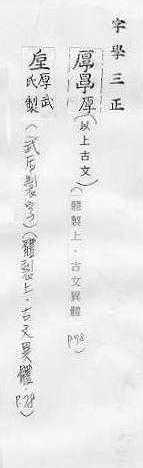 字學三正
厚𣆪垕(以上古文)(體製上·古文異體 p.78)
垕 武氏厚製(武后製字)(體製上·古文異體·P.78)